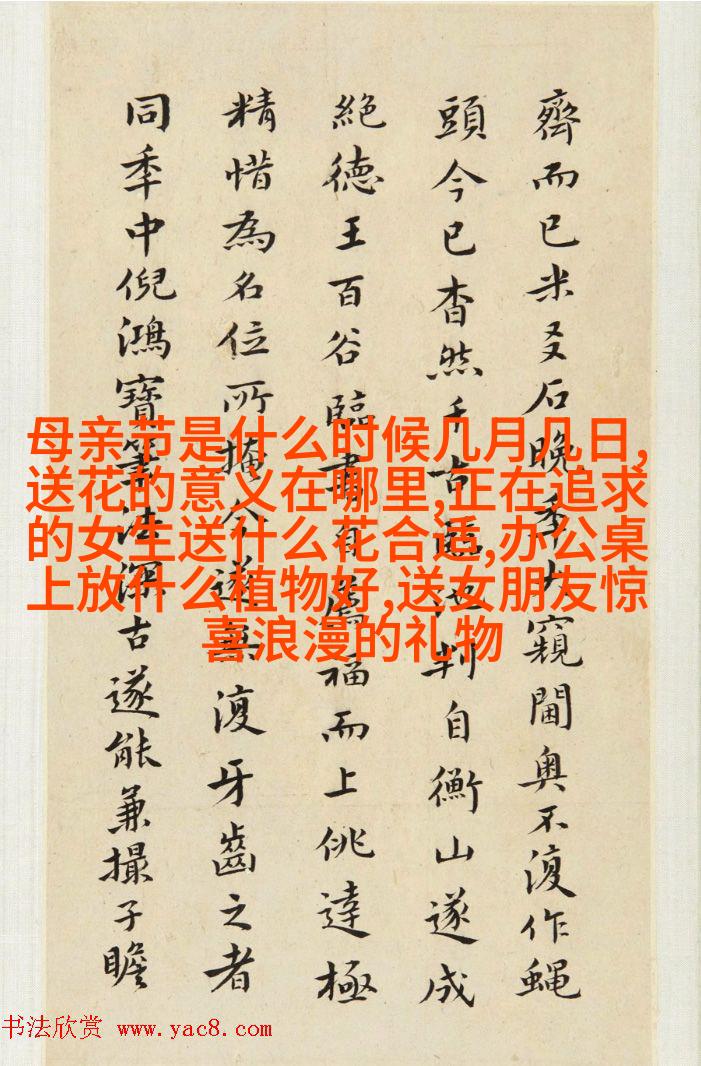 齊而已米友石晚季大窺閫奥不復作蝇
頭今已杳然千古臨池判自衡山遂成
絶德王百谷臨書自薦福而上佻達極
精惜為名位所掩今遂無復牙齒之者
同季中倪鴻寶筆法深古遂能兼撮子瞻
母亲节是什么时候几月几日,
送花的意义在哪里,正在追求
的女生送什么花合适,办公桌
上放什么植物好,送女朋友惊
喜浪漫的礼物
书法欣赏 www.yac8.com